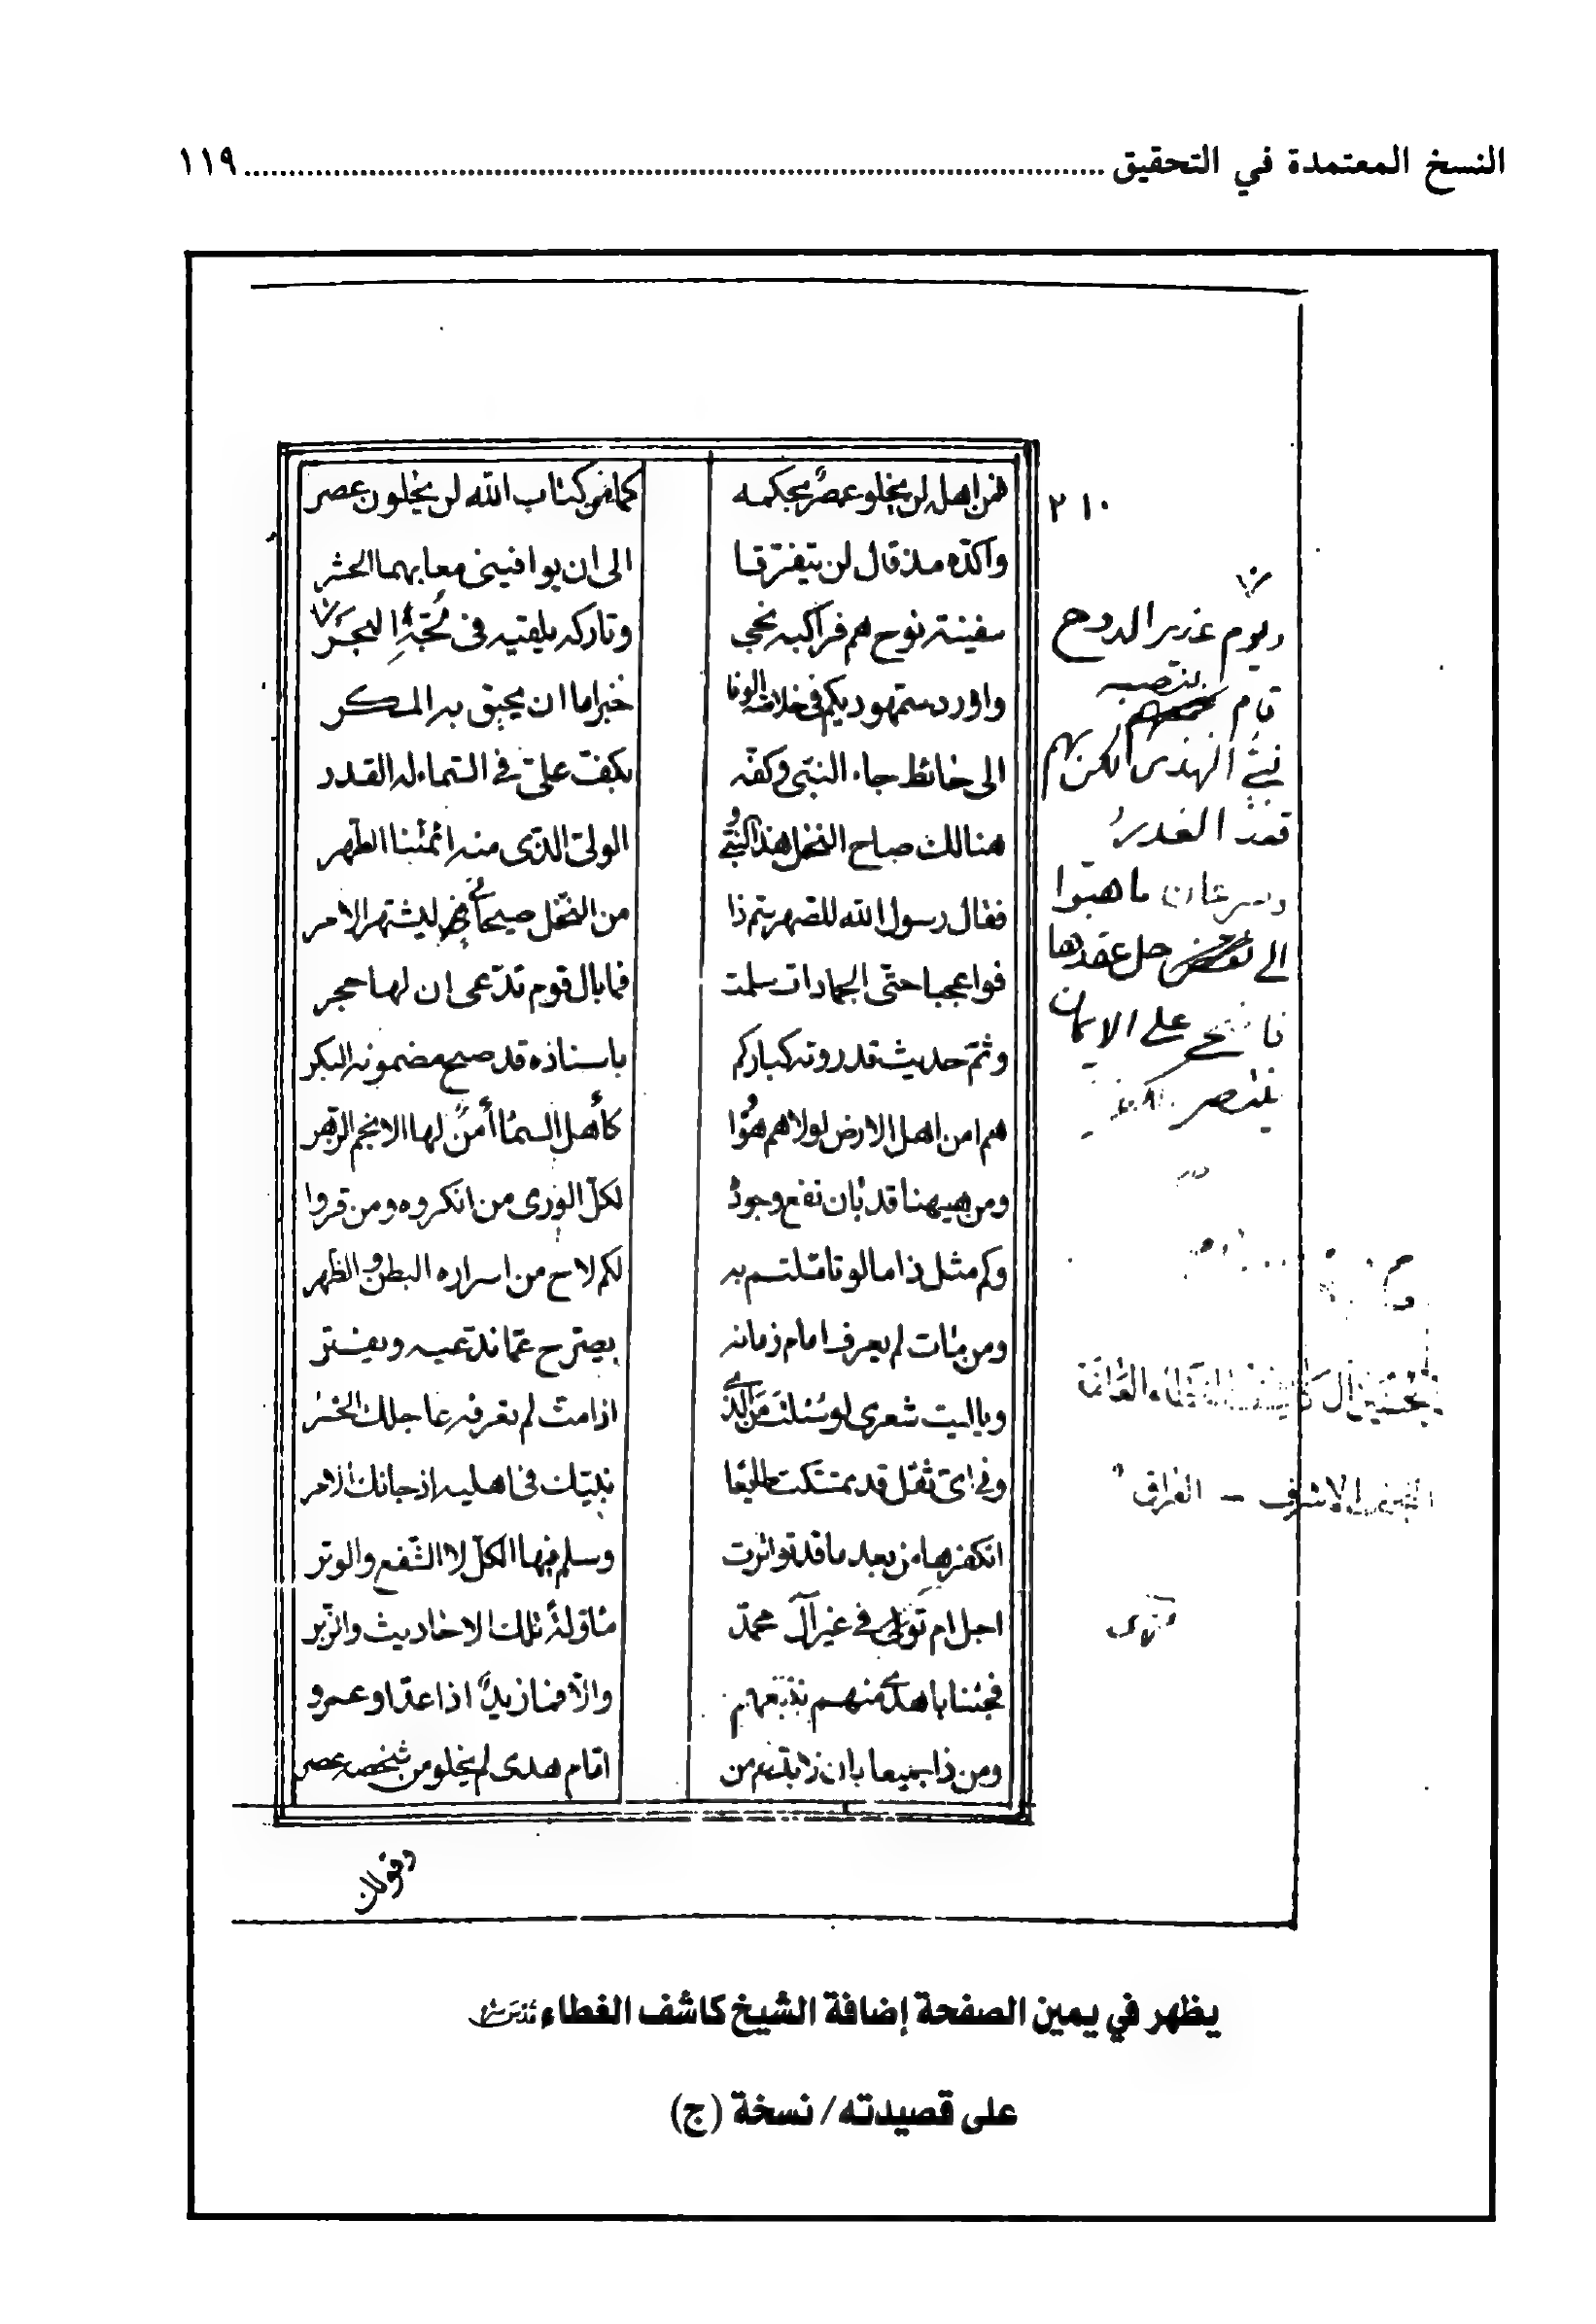 النسخ المعتمدة في التحقيق ........ ١١٩
فمن اهله لن يخلو عصر بحكمه كما في كتاب الله لن يخلون عصر
واكده مذ قال لن يتفرقا الى ان يوافيني معا بهما الحشر
سفينة نوح هم فراكبه نجي وتاركه يلقيه في لجة البحر
واورد سمهوديكم في خلاصة الوفا خبرا ما ان يحيق به المكر
الى حائط جاء النبي وكفه بكف علي في السماء له القدر
هنالك صاح النخل هذا النبي و الولي الذي منه ائمتنا الطهر
فقال رسول الله للصهر سم ذا من النخل صيحاني ليشتهر الامر
فوا عجبا حتى الجمادات سلمت فما بال قوم تدعى ان لها حجر
وثم حديث قد روته كباركم باسناده قد صح مضمونه البكر
هم امن اهل الارض لولاهم هووا كأهل السما أمن لها الانجم الزهر
ومن هيهنا قد بان نفع وجود لكل الورى من انكروه ومن قروا
وكم مثل ذا ما لو تاملتم به لكم لاح من اسراره البطن والظهر
ومن مات لم يعرف امام زمانه يصرح عما ندعيه ويفتر
ويا ليت شعري لو سئلت من الذي اذا مت لم تعرفه عاجلك الخسر
وفي اي ثقل قد تمسكت طايعا نبتيك في اهليه اذ جائك الامر
انكفر ها من بعد ما قد تواترت وسلم فيها الكل لا الشفع والوتر
اجل ام تولى في غير آل محمد مأولة تلك الاحاديث والزبر
فجئنا باهدى منهم نتبعهم والا فما زيد اذا عد او عمرو
ومن ذا جميعا بان لا بد من امام هدى لم يخلو من شخصه عصر
وقولك
٢١٠
ويوم غدير الدوح
قام بنصبه
نبي الهدى لكن بهم
قعد الغدر
وسرعان ما هبوا
الى حل عقدها
على الايمان
ينتصر
العراق
يظهر في يمين الصفحة إضافة الشيخ كاشف الغطاء
على قصيدته/ نسخة (ج)